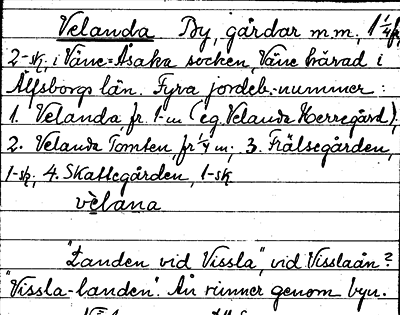 Velanda By, gårdar m.m., 1 1/4 fr,
2 sk, i Väne=Åsaka socken, Väne härad i
Älfsborgs län. Fyra jordeb.-nummer:
1. Velanda, fr 1 m (eg. Velanda Herregård);
2. Velanda Tomten, fr 1/4 m; 3. Frälsegården,
1 sk; 4. Skattegården, 1 sk
vèlana
"Landen vid Vissla", vid Visslaån?
"Vissla-landen". Ån rinner genom byn.